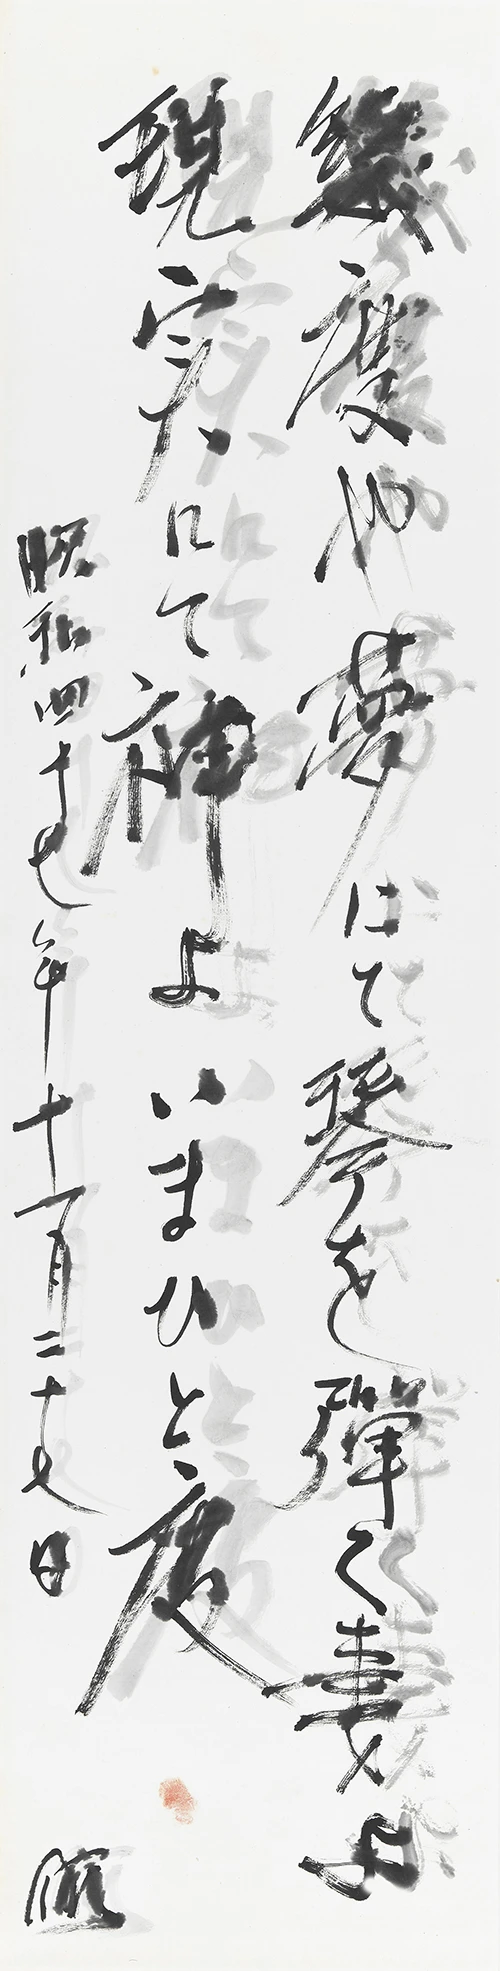 幾度や夢にて琴を彈く妻よ
現実にて神よいまひと度
昭和四十七年十一月二十七日